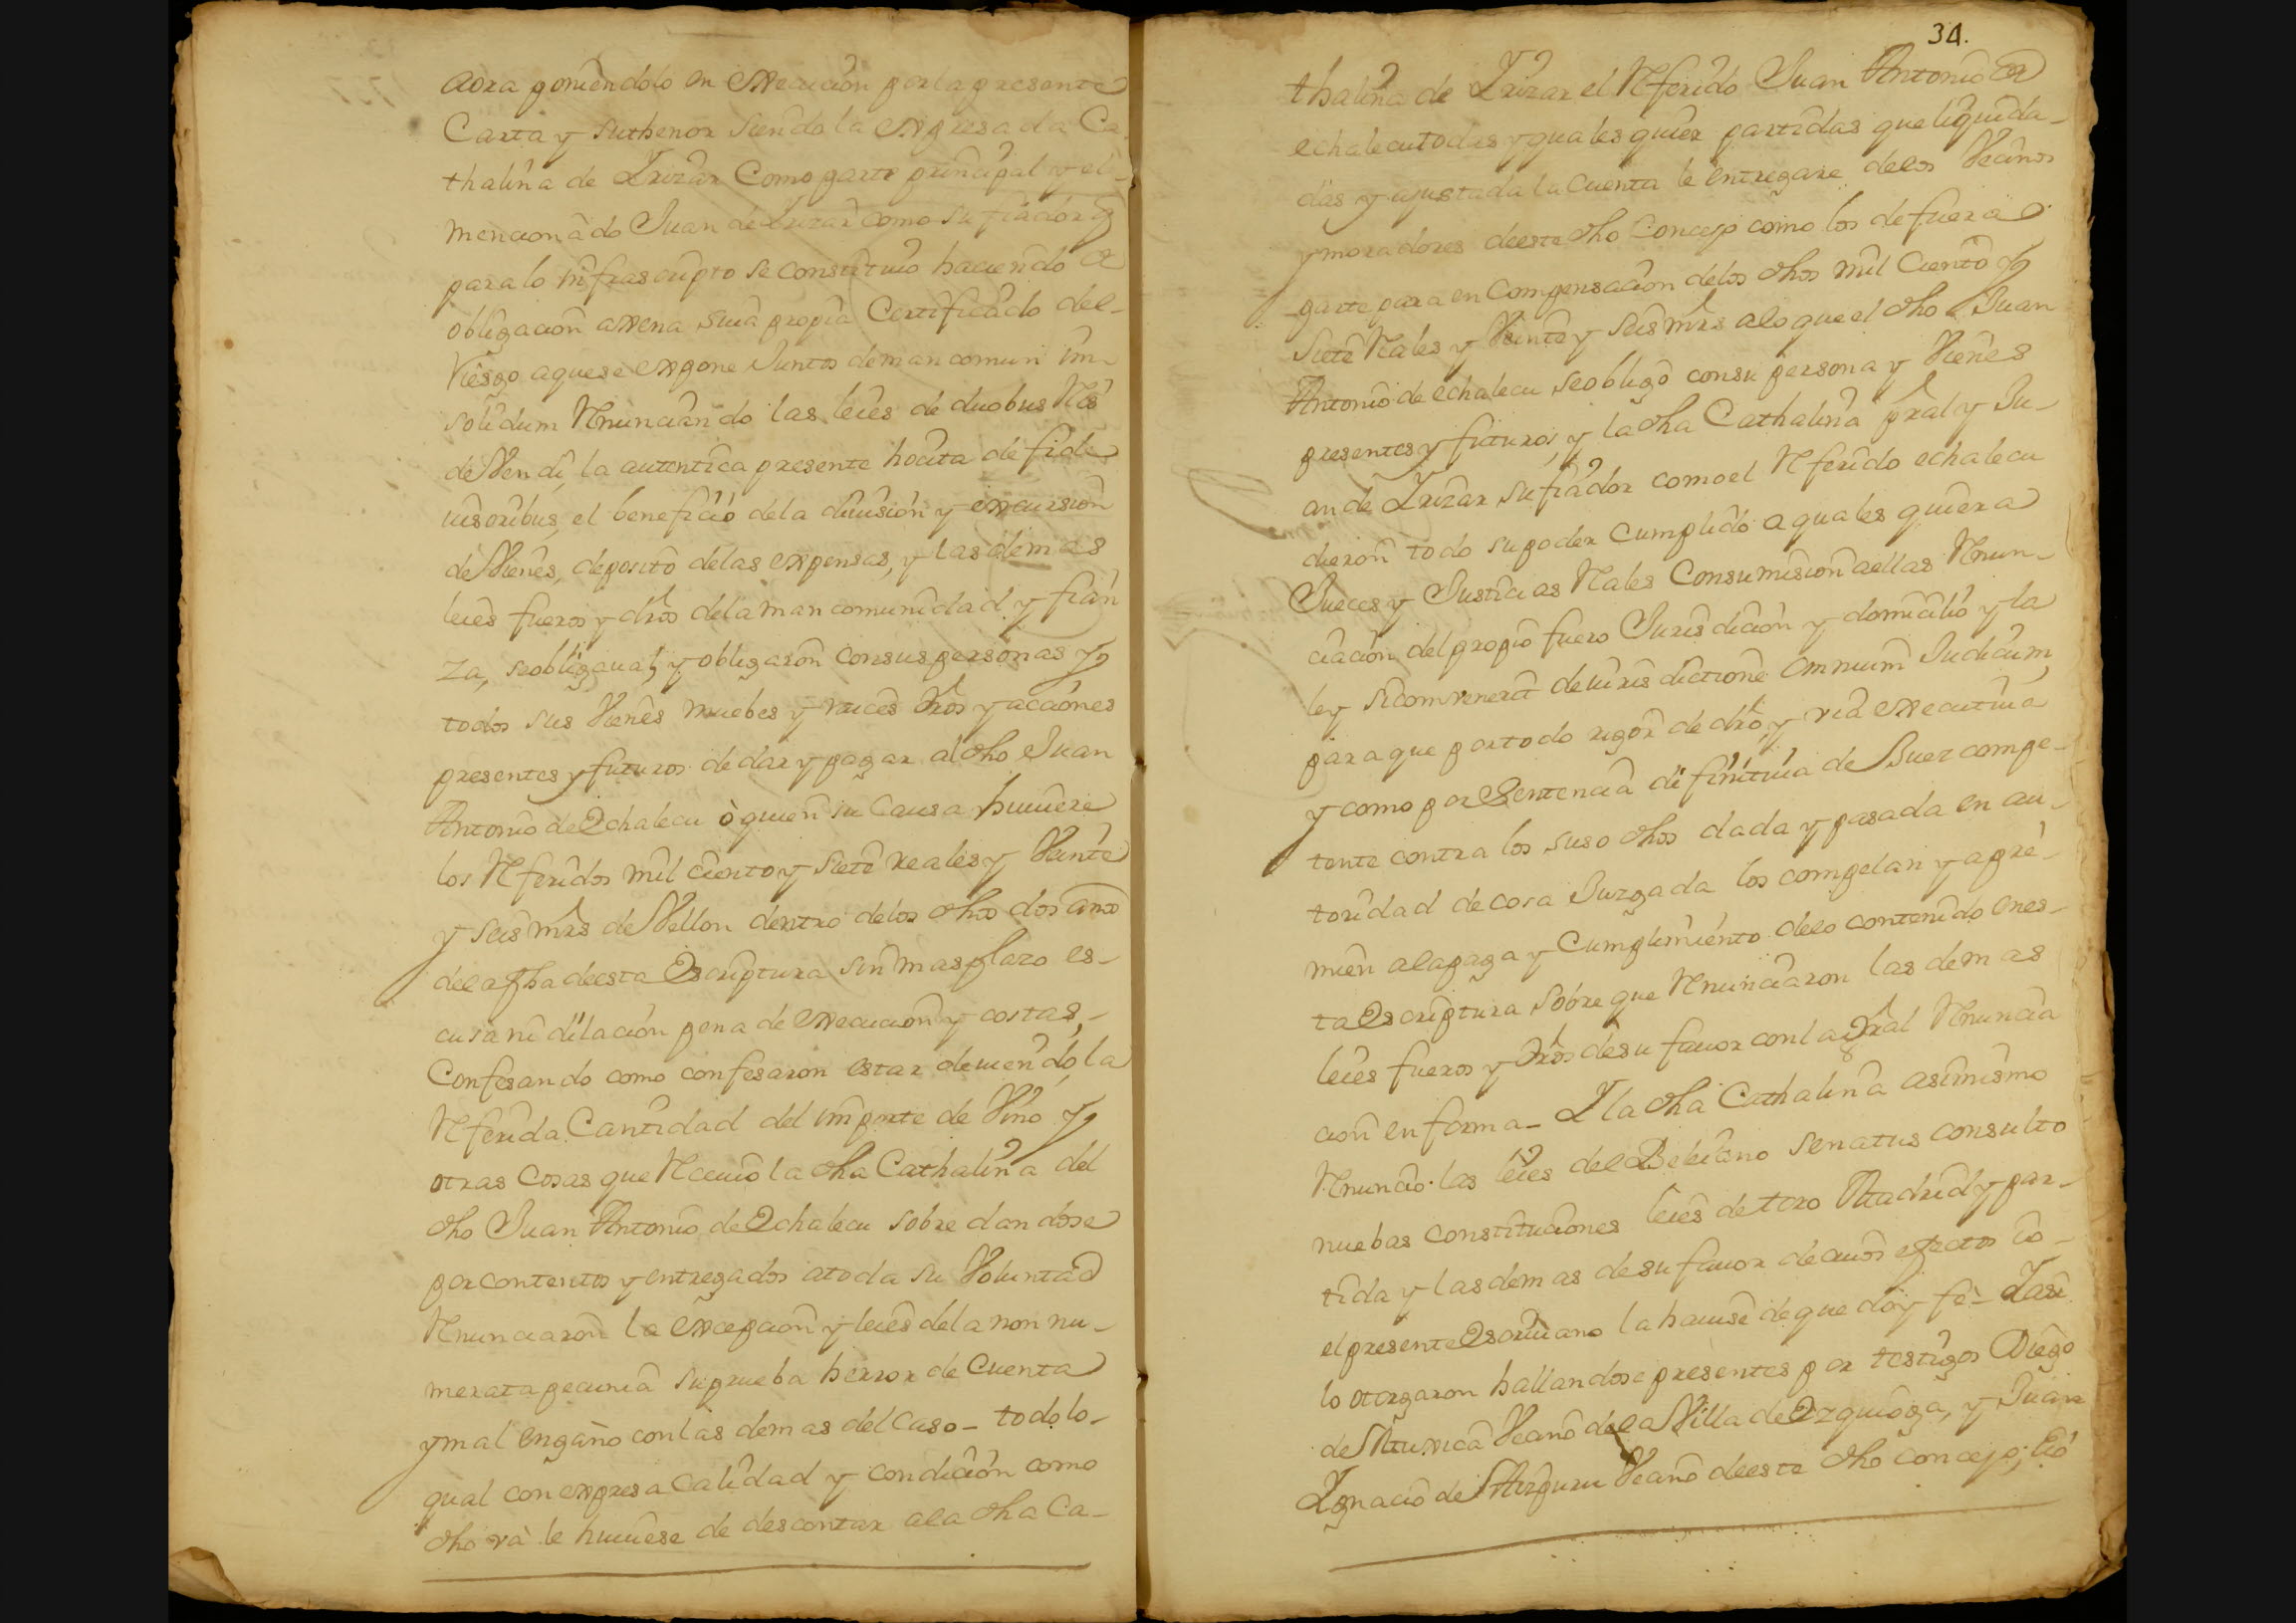 aora poniendolo en execucion por la presente
Carta y su thenor siendo la expresada Ca
thalina de Yrizar Como parte principal y el
mencionado Juan de Yrizar como su fiador q
para lo infrascripto se constituio haciendo
obligacion axena suia propia Certificado del
riesgo a que se expone Juntos de man comun im
solidum Renunciando las leies de duobus Res
de Vendi, la autentica presente hocita de fide
iusoribus, el beneficio de la diuision y excursion
de Vienes, deposito de las expensas, y las demas
leies fueros y dros de la man comunidad y fian
za, se obligaua, y obligaron con sus personas y
todos sus Vienes muebes y raices dros y acciones
presentes y futuros de dar y pagar al dho Juan
Antonio de Echalecu ò quien su Causa huuiere
los Referidos mil ciento y siete reales y Veinte
y seis mrs de Vellon dentro de los dhos dos años
de la fha de esta Escriptura sin mas plazo es-
cusa ni dilacion pena de execucion y costas,
Confesando como confesaron estar deuiendo, la
Referida Cantidad del importe de Vino y
otras Cosas que Reciuio la dha Cathalina del
dho Juan Antonio de Echalecu sobre dandose
por contentos y entregados a toda su Voluntad
Renunciaron la excepcion y leies de la non nu-
merata pecunia su prueba herror de Cuenta
y mal engaño con las demas del Caso- todo lo-
qual con expresa calidad y condicion como
dho và le huuiese de descontar a la dha Ca-
34.
thalina de Yrizar el Referido Juan Antonio de
echalecu todas y quales quier partidas que liquida-
das y ajustada la Cuenta le entregare de los Vecinos
y moradores de este dho Concejo como los de fuera
parte para en Compensacion de los dhos mil Ciento y
siete Reales y Veinte y seis mrs a lo que el dho Juan
Antonio de echalecu se obligò con su persona y Vienes
presentes y futuros, y la dha Cathalina pral y Ju-
an de Yrizar su fiador como el Referido echalecu
dieron todo su poder Cumplido a quales quiera
Jueces y Justicias Reales Con sumision a ellas Renun-
ciacion del propio fuero Jurisdicion y domicilio y la
ley sicomvenerit de iurisdictione omnium Judicum,
para que por todo rigor de dro, y via executiua
y como por Sentencia difinitiua de Juez compe-
tente contra los suso dhos dada y pasada en au-
toridad de cosa Juzgada los compelan y apre-
mien a la paga y Cumplimiento de lo contenido en es-
ta Escriptura sobre que Renunciaron las demas
leies fueros y dros de su fauor con la gral Renuncia
cion en forma- Y la dha Cathalina asimismo
Renuncio las leies del Beleiano senatus consulto
nuebas constituciones leies de toro Madrid y par-
tida y las demas de su fauor de cuios efectos io-
el presente Escriuano la hauise de que doy fè- Y asi
lo otorgaron hallandose presentes por testigos Diego
de Vecino de la Villa de Ezquioga, y Juan
Ygnacio de Vecino de este dho concejo;